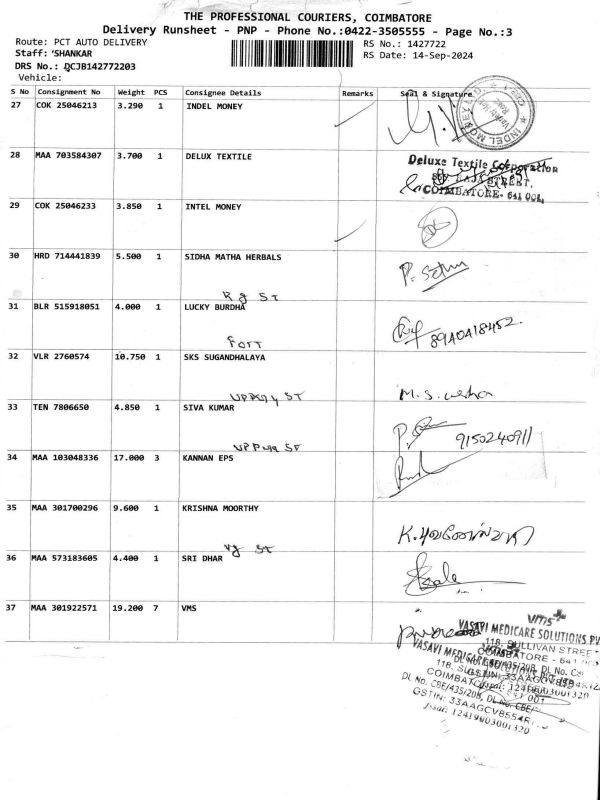 THE PROFESSIONAL COURIERS, COIMBATORE
Delivery Runsheet - PNP - Phone No.:0422-3505555 - Page No.:3
Route: PCT AUTO DELIVERY
RS No.: 1427722
Staff: 'SHANKAR
RS Date: 14-Sep-2024
DRS No.: QCJB142772203
Vehicle:
S No Consignment No Weight PCS Consignee Details Remarks Seal & Signature
27 COK 25046213 3.290 1 INDEL MONEY
28 MAA 703584307 3.700 1 DELUX TEXTILE
Deluxe Textile Corporation
RAJA STREET,
COIMBATORE- 641 001.
29 COK 25046233 3.850 1 INTEL MONEY
30 HRD 714441839 5.500 1 SIDHA MATHA HERBALS
Rg ST
31 BLR 515918051 4.000 1 LUCKY BURDHA
8940418452.
Fort
32 VLR 2760574 10.750 1 SKS SUGANDHALAYA
M.S.
ST
33 TEN 7806650 4.850 1 SIVA KUMAR
9150240911
ST
34 MAA 103048336 17.000 3 KANNAN EPS
35 MAA 301700296 9.600 1 KRISHNA MOORTHY
ST
36 MAA 573183605 4.400 1 SRI DHAR
37 MAA 301922571 19.200 7 VMS
VASAVI MEDICARE SOLUTIONS
118, SULLIVAN STREET
COIMBATORE - 641 001
GSTIN: 33AAGCV8554R
12419003001320